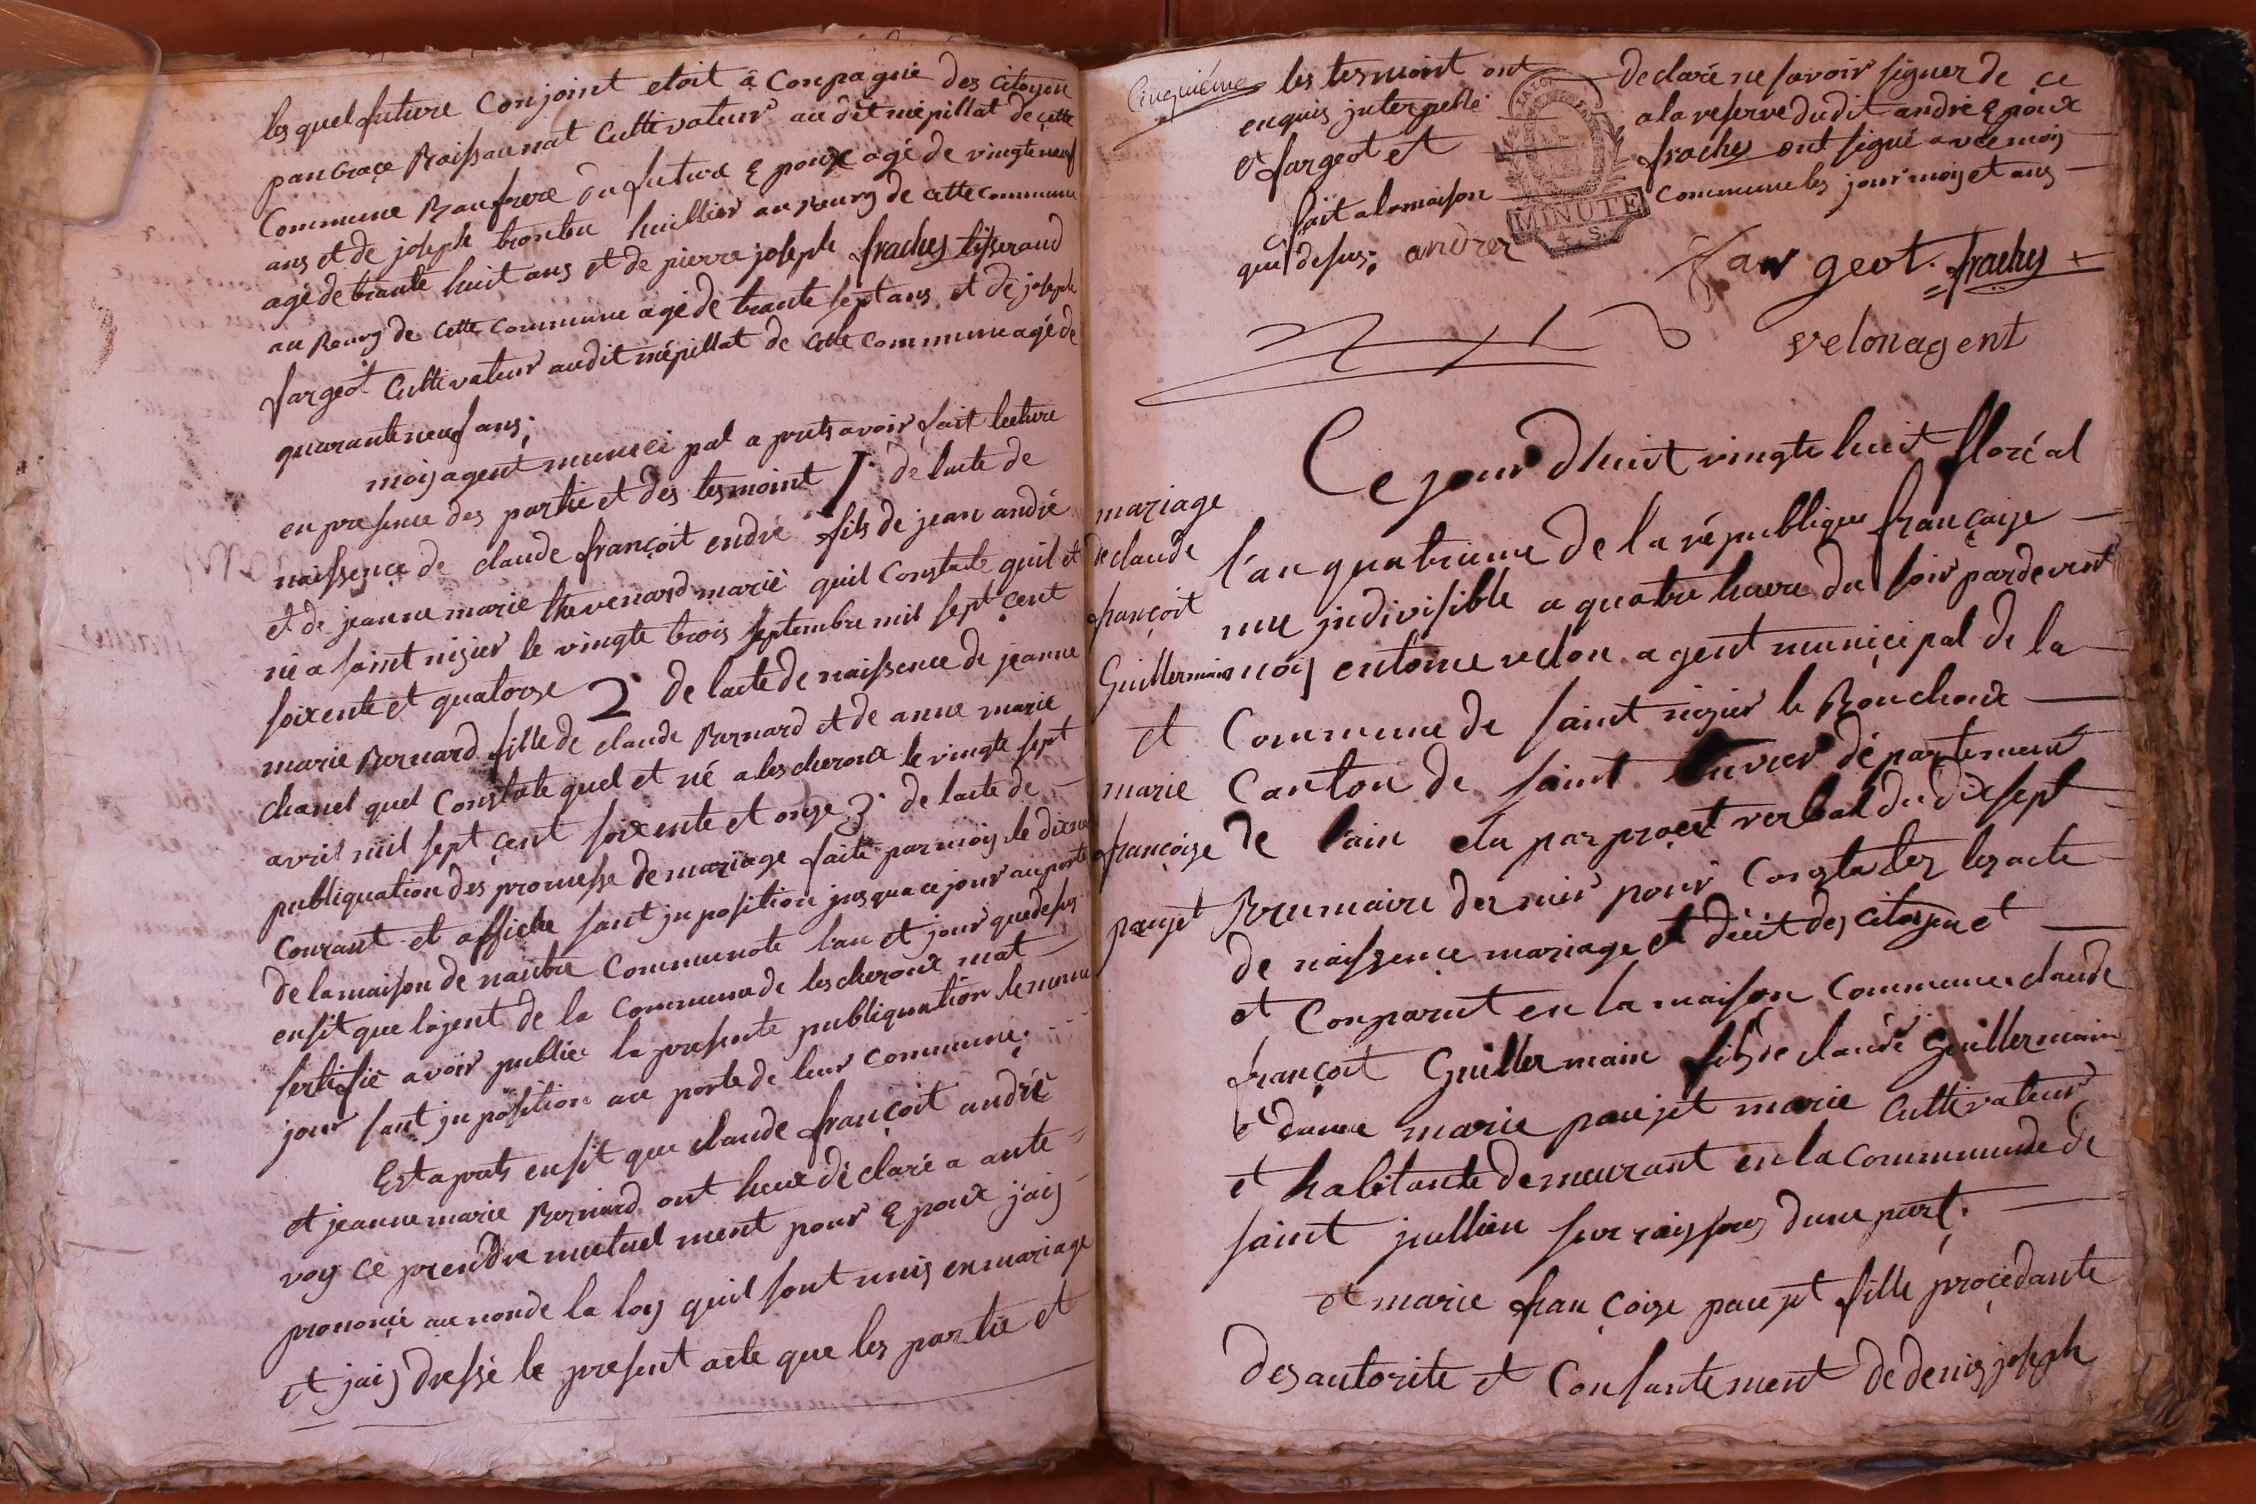 les quel future Conjoint etoit â Conpagnie des citoyen
pancraçe Boissannat Cultivateur audit mépillat de cette
Commune Baufrere du future Epoux agé de vingte neuf
ans et de joseph huillier au Bourg de cette commune
agé de trante huit ans et de pierre joseph frachey tisserand
au Bourg de cette commune agé de trante sept ans et de joseph
fargeot Cultivateur audit mépillat de cette commune agé de
quarante neuf ans;
moiy agent municipal a prets avoir fait lecture
en presence des partie et des tesmoint 1° de lacte de
naissence de claude françoit endré fils de jean andré
et de jeanne marie thevenard marié quil Constate quil et
né a saint nizier le vingte trois septembre mil sept çent
soixente et quatorze 2° de lacte de naissence de jeanne
marie Bernard fille de claude Bernard et de anne marie
chanel quel Constate quel et né a lescheroux le vingte sept
avril mil sept çent soixente et onze 3° de lacte de
publiquation des promesse de mariage faite par moiy le dixneuf
Courant et affiche sant jnposition jusqua ce jour au porte
de la maison de naûtre Commune l'an et jour que desus
ensit que lajent de la Commune de lescheroux mat
sertifié avoir publier la presente publiquation le meme
jour sant jnposition au porte de leur commune.
Est aprets ensit que claude françoit andrié
et jeanne marie Bernard ont heux déclaré a aute
voy ce prendre mutuel ment pour Epoux jaiy
prononçé au nonde la loy quil sont unis en mariage
et jaiy dressé le present acte que les partie et
Cinquiéme les tesmoint ont declaré ne savoir signer de ce
enquis jnterpellé a la reserve dudit andré Epoux
et fargeot et frachey ont signé avec moiy
fait a la maison commune les jour mois et ans
que desus; andrez
MINUTE
fargeot frachey
velon agent
Ce jour dhuit vingte huit floréal
l'an quatrieme de la république françaize
mariage
de claude
françoit
Guillermain
et
marie
françoize
paujet
une jndivisible a quatre heure du soir pardevent
moiy entoine velon agent muniçipal de la
Commune de saint nizier le Bouchoux
Canton de saint trivier département
de lain elu par proçet verbal du dix sept
Brumaire dernier pour Constater les acte
de naissence mariage et déçit des citoyen et
et Conparut en la maison Commune claude
françoit Guillermain fils de claude Guillermain
et danne marie paujet marié Cultivateur
et habitante demeurant en la commune de
saint jullien sur raissous dune part.
et marie françoize paujet fille proçedante
des autorite et Consantement de denis joseph